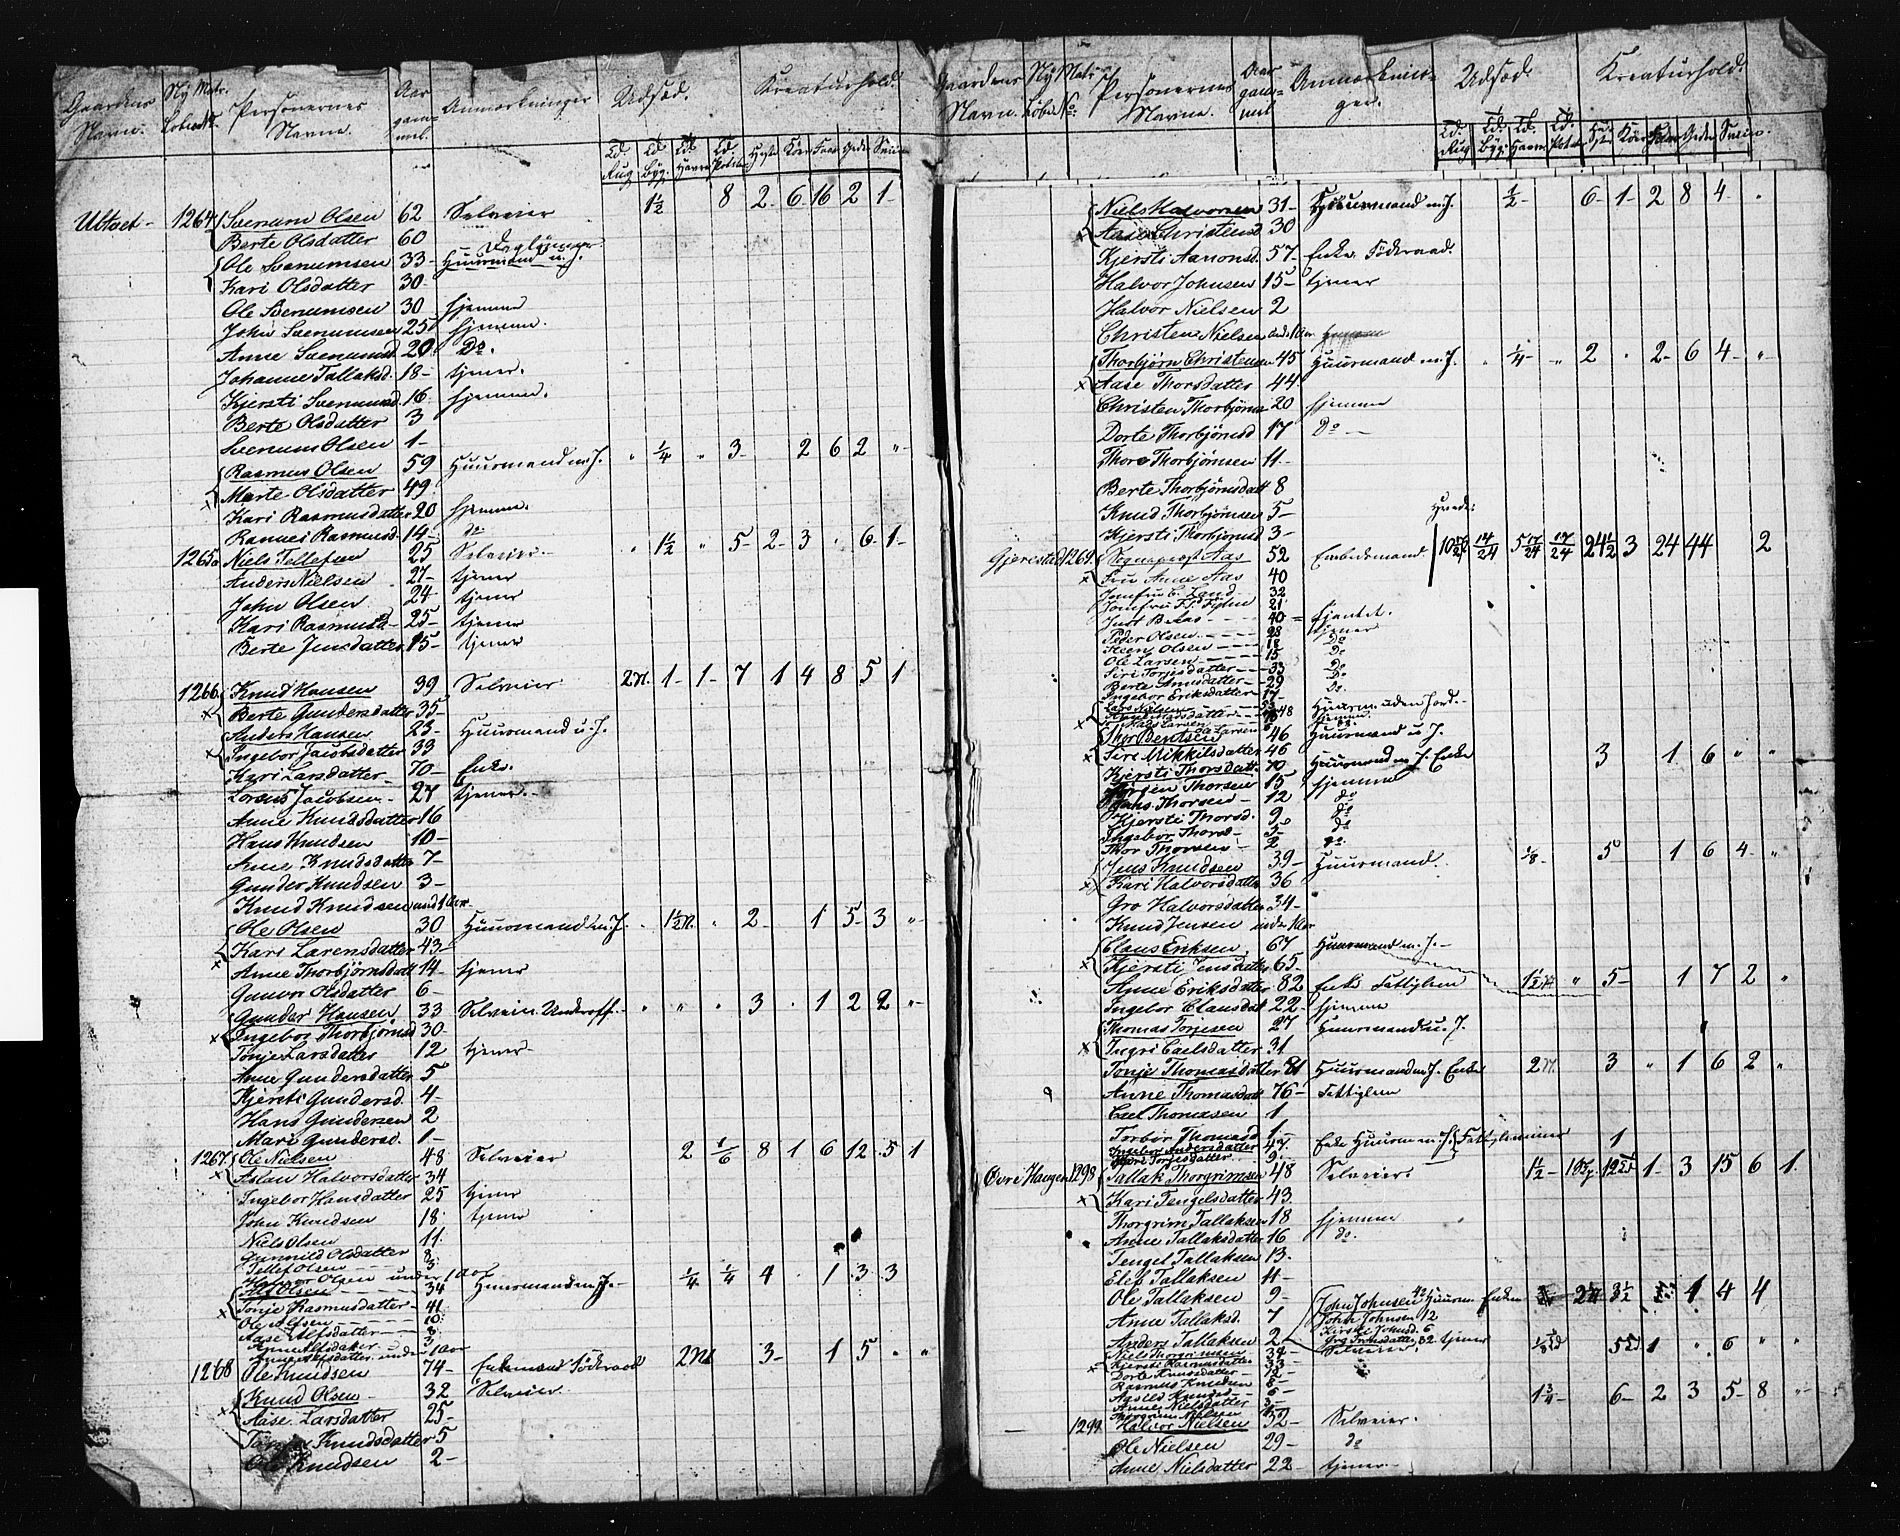 Gaardens Navn. Ny Matr. Løbe No. Personernes Navne. Aar gammel. Anmærkninger Udsæd. Kreaturhold.
Td. Rug Td. Byg. Td. Havre Td. Poteter Heste Kör Faar Geder Sviin
1½ 8 2 6 16 2 1
Ubtvet 1264 Svenum Olsen 62 Selveier
Berte Olsdatter 60
Ole Svenumsen 33 Huurmand u. J. Daglönner
Kari Olsdatter 30
Ole Svenumsen 30 hjemme
John Svenumsen 25 hjemme.
Anne Svenumsd. 20 Do.
Johanne Tallaksd. 18 tjener.
Kjersti Svenumsd. 16 hjemme.
Berte Olsdatter 3
Svenum Olsen 1
Rasmus Olsen 59 Huurmand m. J. " ¼ " 3 2 6 2 "
Marte Olsdatter 49
Kari Rasmusdatter 20 hjemme.
Rasmus Rasmusd. 14 do
1265 Niels Tellefsen 25 Selveier " 1½ " 5 2 3 " 6 1
Anders Nielsen 27 tjener
John Olsen 24 tjener
Kari Rasmusd 25 tjener
Berte Jensdatter 15 tjener
1266 Knud Hansen 39 Selveier 2 1 1 7 1 4 8 5 1
Berte Gundersdatter 35
Anders Hansen 23 Huurmand u. J.
Ingebor Jacobsdatter 33
Kari Larsdatter 70 Enke.
Lorens Jacobsen 27 tjener.
Anne Knudsdatter 16
Hans Knudsen 10
Anne Knudsdatter 7
Gunder Knudsen 3
Knud Knudsen und 1 Aar
Ole Olsen 30 Huurmand m. J. 1½ " 2 1 5 3 "
Kari Larensdatter 43
Anne Thorbjørnsdatt 14 tjener
Gunvor Olsdatter 6
Gunder Hansen 33 Selveier. Underoff. " " " 3 1 2 2 "
Ingebor Thorbjørnsd 30
Tonje Larsdatter 12 tjener
Anne Gundersdatter 5
Kjersti Gundersd. 4
Hans Gundersen 2
Mari Gundersd. 1
1267 Ole Nielsen 48 Selveier 2 1/6 8 1 6 12 5 1
Aslau Halvorsdatter 34
Ingebor Hansdatter 25 tjener
John Knudsen 18 tjener
Niels Olsen 11
Gunnild Olsdatter 8
Tellef Olsen 3
Halvor Olsen under 1 aar
Alf Olsen 34 Huurmand m. J. ¼ ¼ 4 1 3 3
Tonje Rasmusdatter 41
Ole Alfsen 10
Aase Alfsdatter 8
Anne Alfsdatter 3
Anne Alfsdatter under 1 aar
1268 Ole Knudsen 74 Enkemand Föderaad 2 3 1 5 " "
Knud Olsen 32 Selveier
Aase Larsdatter 25
Knudsdatter 5
Ole Knudsen 2
Gaardens Navn. Ny Matr. Løbe No. Personernes Navne. Aar gammel Anmærkninger. Udsæd. Kreaturhold.
Td. Rug Td. Byg. Td. Havre Td. Potet Heste Kör Faar Geder Sviin.
Niels Halvorsen 31 Huurmand m. J. ½ 6 1 2 8 4 "
Aase Christensd 30
Kjersti Aanonsd. 57 Enke. Föderaad.
Halvor Johnsen 15 tjener
Halvor Nielsen 2
Christen Nielsen under 1 Aar
Thorbjørn Christensen 45 Huurmand m. J. " ¼ " 2 " 2 6 4 "
Aase Thorsdatter 44
Christen Thorbjørnsen 20 hjemme
Dorte Thorbjørnsd 17 Do
Thore Thorbjørnsen 11
Berte Thorbjørnsdatt 8
Knud Thorbjørnsen 5
Kjersti Thorbjørnsd 3
Gjerestad 1269. Sognepræst Aas 52 Embedsmand 14/24 5 17/24 17/24 24½ 3 24 44 2
Fru Anne Aas 40
Jomfru C. Lund 32
Jomfru 21
Just B. Aas 40
Peder Olsen 28 tjener
Steen Olsen 18 Do
Ole Larsen 15 Do
Siri Torjesdatter 33 Do
Berte Amsdatter 29 Do.
Ingebor Eriksdatter 17
Lars Nielsen 53 Huurm. uden Jord.
Thor Bentsen 46 Huurmand u J.
Siri Mikkelsdatter 46
Kjersti Thorsdatt. 70 Huurmand m. J. Enke 3 1 6 " "
Jörgen Thorsen 15 hjemme
Hans Thorsen 12 do
Kjersti Thorsd. 9 Do
Ingebor Thorsd 5 do
Thor Thorsen 2 do.
Jens Knudsen 39 Huurmand. ⅛ 5 1 6 4 "
Kari Halvorsdatter 36
Gro Halvorsdatter 34
Knud Jensen under 1 Aar
Claus Eriksen 67 Huurmand m. J.
Kjersti Jensdatter 65
Anne Eriksdatter 82 Enke Fattiglem 1½ " 5 1 7 2 "
Ingebor Clausdat 22 hjemme
Thomas Torjesen 27 Huurmand u. J.
Ingri Carlsdatter 31
Tonje Thomasdatter 81 Huurmand m. J. Enke 2 3 " 1 6 2 "
Anne Thomasdatt 76 Fattiglem
Carl Thomasen 1
Torbor Thomasd 1
Ingebor Andersdatter 47 Enke Huurm m. J. Fattiglemmer 1
Torjesdatter 9
Øvre Haugen 1298 Tallak Thorgrimsen 48 Selveier. 1½ 1 3 15 6 1
Kari Tengelsdatter 43
Thorgrim Tallaksen 18 hjemme
Anne Tallaksdatter 16 do.
Tengel Tallaksen 13
Elef Tallaksen 11
Ole Tallaksen 9 John Johnsen 42 Huurm. Enkem 3½ 1 4 4
Anne Tallaksd. 7 John Johnsen 12
Anders Tallaksen 2 Kirsti Johnsd. 6
Niels Thorgrimsen 34 Selveier. 1 " 6 " "
Kjersti Rasmusdatter 33
Dorte Knudsdatter 12
Rasmus Knudsen 8
Knudsd 6
Anne Nielsdatter 3 1¾ 6 2 3 5 8 "
1299 Halvor Nielsen 32 Selveier.
Ole Nielsen 29 do
Anne Nielsdatter 22 tjener